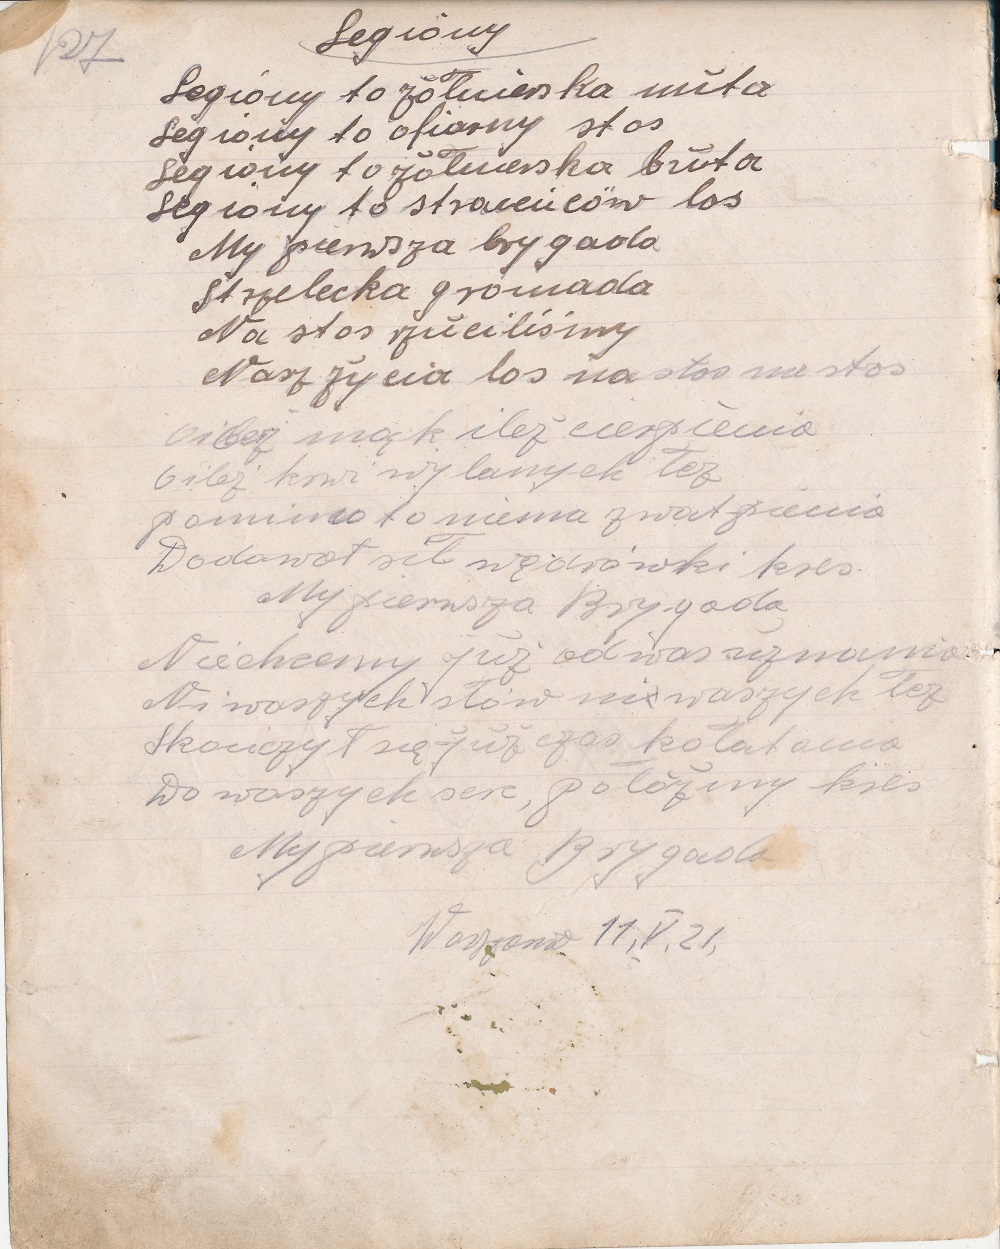 127
Legiony
Legiony to żółnierska nuta
Legiony to ofiarny stos
Legiony to żółnierska buta
Legiony to straceńców los
My pierwsza brygada
Strzelecka gromada
Na stos rzuciliśmy
Nasz życia los na stos na stos
O ileż mąk ileż cierpienia
O ileż krwi wylanych łez
pomimo to niema zwątpienia
Dodawał sił wędrówki kres.
My pierwsza Brygada
Niechcemy już od was uznania
Ni waszych słów ni waszych łez
Skończył się już czas kołatania
Do waszych serc, połóżmy kres
My pierwsza Brygada
11.V.21.